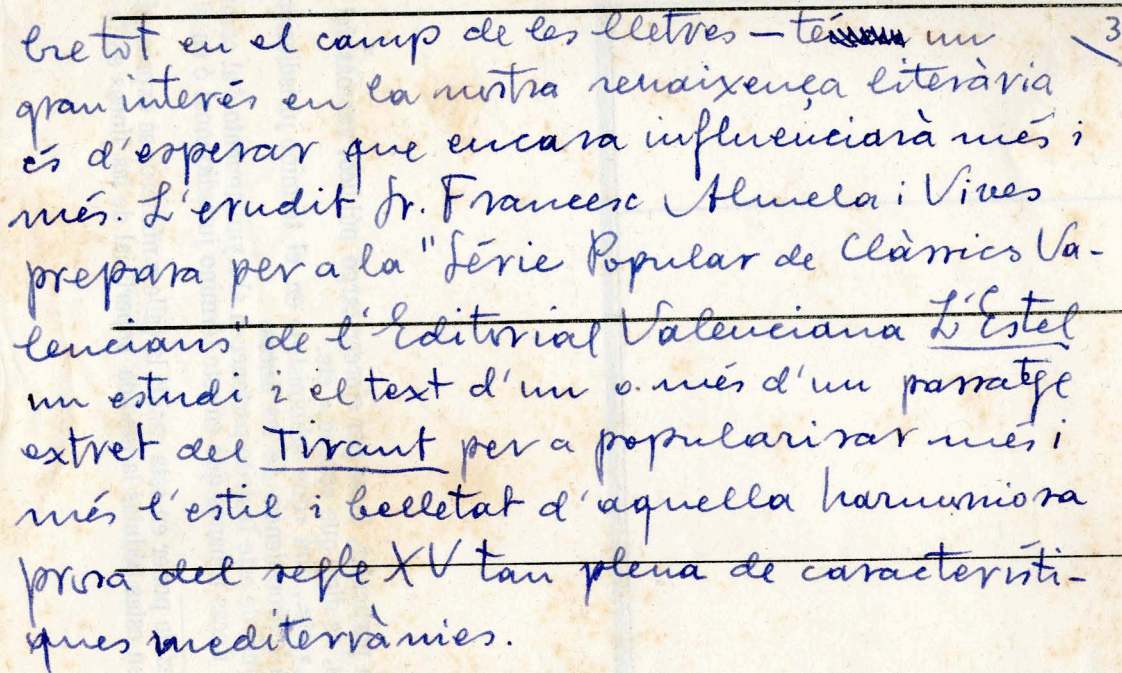 bre tot en el camp de les lletres — té un 3
gran interés en la nostra renaixença literària
és d'esperar que encara influenciarà més i
més. L'erudit Sr. Francesc Almela i Vives
prepara per a la "Série Popular de Clàssics Va-
lencians" de l'Editorial Valenciana L'Estel
un estudi i el text d'un o més d'un passatge
extret del Tirant per a popularisar més i
més l'estil i belletat d'aquella harmoniosa
prosa del segle XV tan plena de característi-
ques mediterrànies.